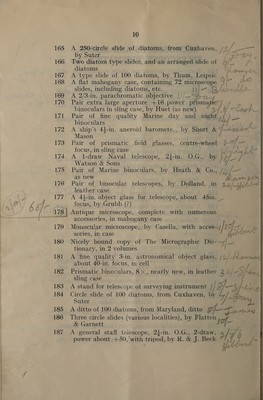 10
165 A 250-circle slide of diatoms, from Cuxhaven,
by Suter
166 Two diatom type slides, and an arranged slide of
diatoms
167 A type slide of 100 diatoms, by Thum, Leipsic
168 A flat mahogany case, containing 72 microscope
slides, including diatoms, etc.
169 A 2/3-in. parachromatic objective
170 Pair extra large aperture ×16 power prismatic
binoculars in sling case, by Huet (as new)
171 Pair of fine quality Marine day and night
binoculars
172 A ship's 4½-in. aneroid barometer, by Short &
Mason
173 Pair of prismatic field glasses, centre-wheel
focus, in sling case
174 A 1-draw Naval telescope, 2½-in. O.G., by
Watson & Sons
175 Pair of Marine binoculars, by Heath & Co.,
as new
176 Pair of binocular telescopes, by Dolland, in
leather case
177 A 4½-in. object glass for telescope, about 48in.
focus, by Grubb
178 Antique microscope, complete with numerous
accessories, in mahogany case
179 Monocular microscope, by Casella, with acces-
sories, in case
180 Nicely bound copy of The Micrographic Dic-
tionary, in 2 volumes
181 A fine quality 3-in. astronomical object glass,
about 40-in. focus, in cell
182 Prismatic binoculars, 8×, nearly new, in leather
sling case
183 A stand for telescope of surveying instrument
184 Circle slide of 100 diatoms, from Cuxhaven, by
Suter
185 A ditto of 100 diatoms, from Maryland, ditto
186 Three circle slides (various localities), by Flatters
& Garnett
187 A general staff telescope, 2½-in. O.G., 2-draw,
power about ×30, with tripod, by R. & J. Beck